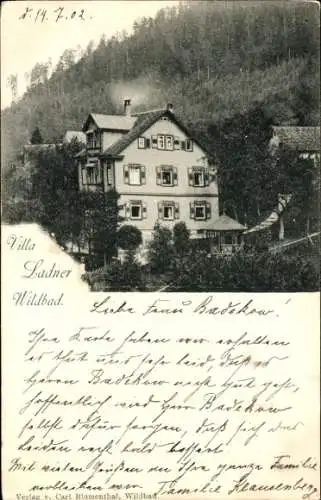 d. 14. 7. 02.
Villa
Ladner
Wildbad.
Liebe Frau Badekow!
Ihre Karte haben wir erhalten
es tut uns sehr leid, daß es
Herrn Badekow nicht gut geht,
hoffentlich wird Herr Badekow
selbst dafür sorgen, daß das
Leiden recht bald
Mit vielen Grüßen an Ihre ganze Familie
verbleiben wir Familie
Verlag v. Carl Blumenthal, Wildbad.